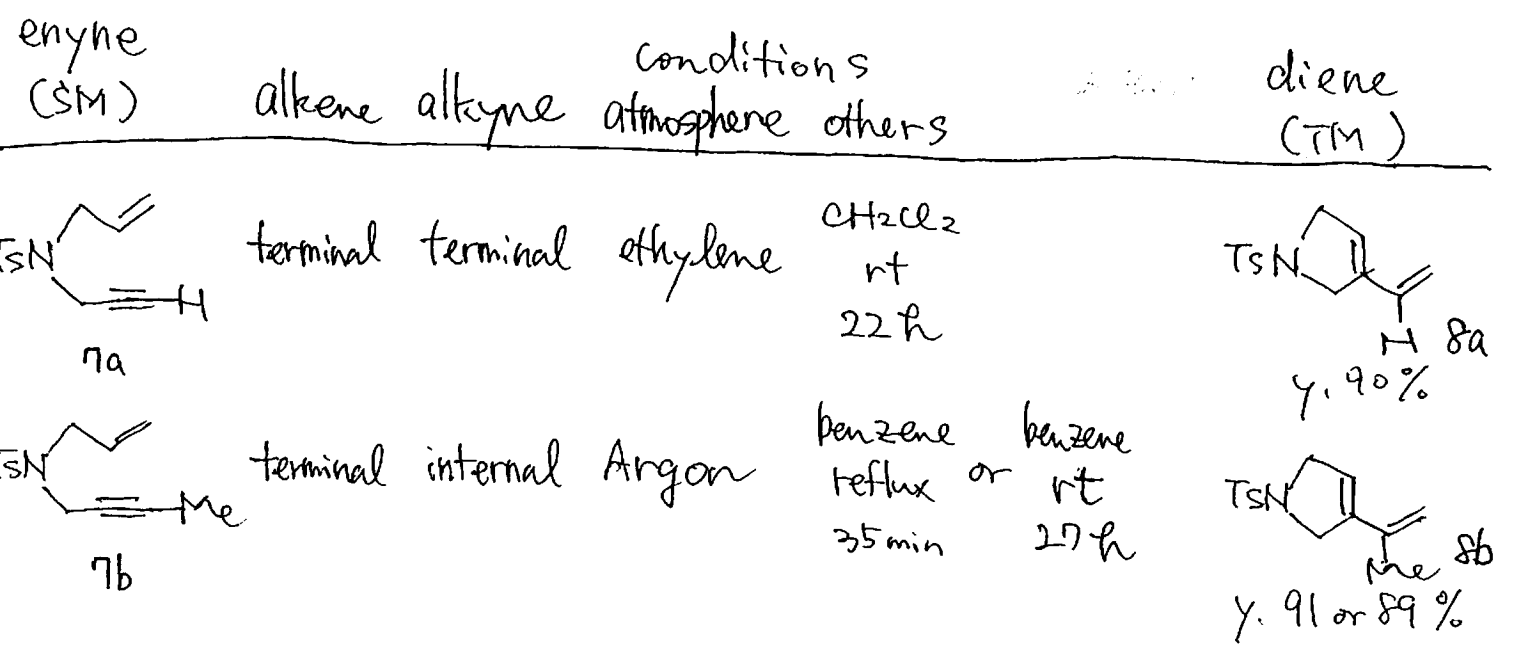 enyne
(SM)
alkene alkyne
conditions
atmosphere others
diene
(TM)
TsN
H
7a
terminal terminal ethylene
CH2Cl2
rt
22 h
TsN
H 8a
y. 90%
TsN
Me
7b
terminal internal Argon
benzene
reflux
35 min
or
benzene
rt
27 h
TsN
Me 8b
y. 91 or 89 %